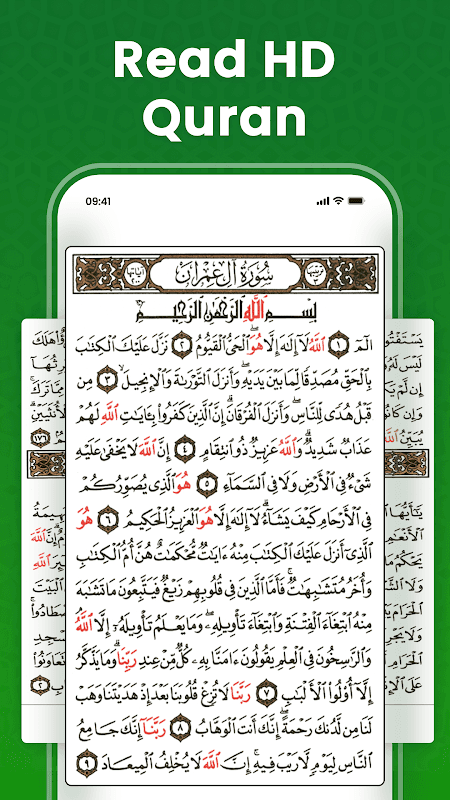 Read HD
Quran
09:41
ترتيبها ٣
سُورَةُ آلِ عِمْرَان
آياتها ٢٠٠
بِسْمِ اللَّهِ الرَّحْمَٰنِ الرَّحِيمِ
الٓمٓ ۝١ ٱللَّهُ لَآ إِلَٰهَ إِلَّا هُوَ ٱلْحَىُّ ٱلْقَيُّومُ ۝٢ نَزَّلَ عَلَيْكَ ٱلْكِتَٰبَ
بِٱلْحَقِّ مُصَدِّقًا لِّمَا بَيْنَ يَدَيْهِ وَأَنزَلَ ٱلتَّوْرَىٰةَ وَٱلْإِنجِيلَ ۝٣ مِن
قَبْلُ هُدًى لِّلنَّاسِ وَأَنزَلَ ٱلْفُرْقَانَ ۗ إِنَّ ٱلَّذِينَ كَفَرُوا۟ بِـَٔايَٰتِ ٱللَّهِ لَهُمْ
عَذَابٌ شَدِيدٌ ۗ وَٱللَّهُ عَزِيزٌ ذُو ٱنتِقَامٍ ۝٤ إِنَّ ٱللَّهَ لَا يَخْفَىٰ عَلَيْهِ
شَىْءٌ فِى ٱلْأَرْضِ وَلَا فِى ٱلسَّمَآءِ ۝٥ هُوَ ٱلَّذِى يُصَوِّرُكُمْ
فِى ٱلْأَرْحَامِ كَيْفَ يَشَآءُ ۚ لَآ إِلَٰهَ إِلَّا هُوَ ٱلْعَزِيزُ ٱلْحَكِيمُ ۝٦ هُوَ
ٱلَّذِىٓ أَنزَلَ عَلَيْكَ ٱلْكِتَٰبَ مِنْهُ ءَايَٰتٌ مُّحْكَمَٰتٌ هُنَّ أُمُّ ٱلْكِتَٰبِ
وَأُخَرُ مُتَشَٰبِهَٰتٌ ۖ فَأَمَّا ٱلَّذِينَ فِى قُلُوبِهِمْ زَيْغٌ فَيَتَّبِعُونَ مَا تَشَٰبَهَ
مِنْهُ ٱبْتِغَآءَ ٱلْفِتْنَةِ وَٱبْتِغَآءَ تَأْوِيلِهِۦ ۗ وَمَا يَعْلَمُ تَأْوِيلَهُۥٓ إِلَّا ٱللَّهُ ۗ
وَٱلرَّٰسِخُونَ فِى ٱلْعِلْمِ يَقُولُونَ ءَامَنَّا بِهِۦ كُلٌّ مِّنْ عِندِ رَبِّنَا ۗ وَمَا يَذَّكَّرُ
إِلَّآ أُو۟لُوا۟ ٱلْأَلْبَٰبِ ۝٧ رَبَّنَا لَا تُزِغْ قُلُوبَنَا بَعْدَ إِذْ هَدَيْتَنَا وَهَبْ
لَنَا مِن لَّدُنكَ رَحْمَةً ۚ إِنَّكَ أَنتَ ٱلْوَهَّابُ ۝٨ رَبَّنَآ إِنَّكَ جَامِعُ
ٱلنَّاسِ لِيَوْمٍ لَّا رَيْبَ فِيهِ ۚ إِنَّ ٱللَّهَ لَا يُخْلِفُ ٱلْمِيعَادَ ۝٩